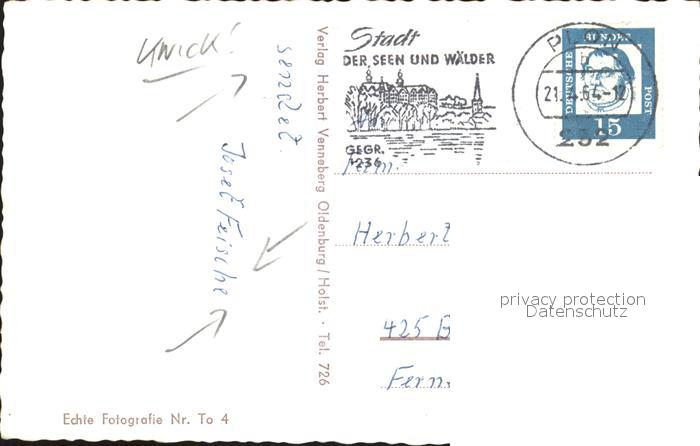 Knick!
sendet.
Josef Feische
Verlag Herbert Venneberg Oldenburg/Holst. · Tel. 726
Stadt
DER SEEN UND WÄLDER
GEGR.
1236
PLÖN
21. 64-12
232
DEUTSCHE BUNDES POST
15
Fam.
Herbert
425 B
Fern.
privacy protection
Datenschutz
Echte Fotografie Nr. To 4